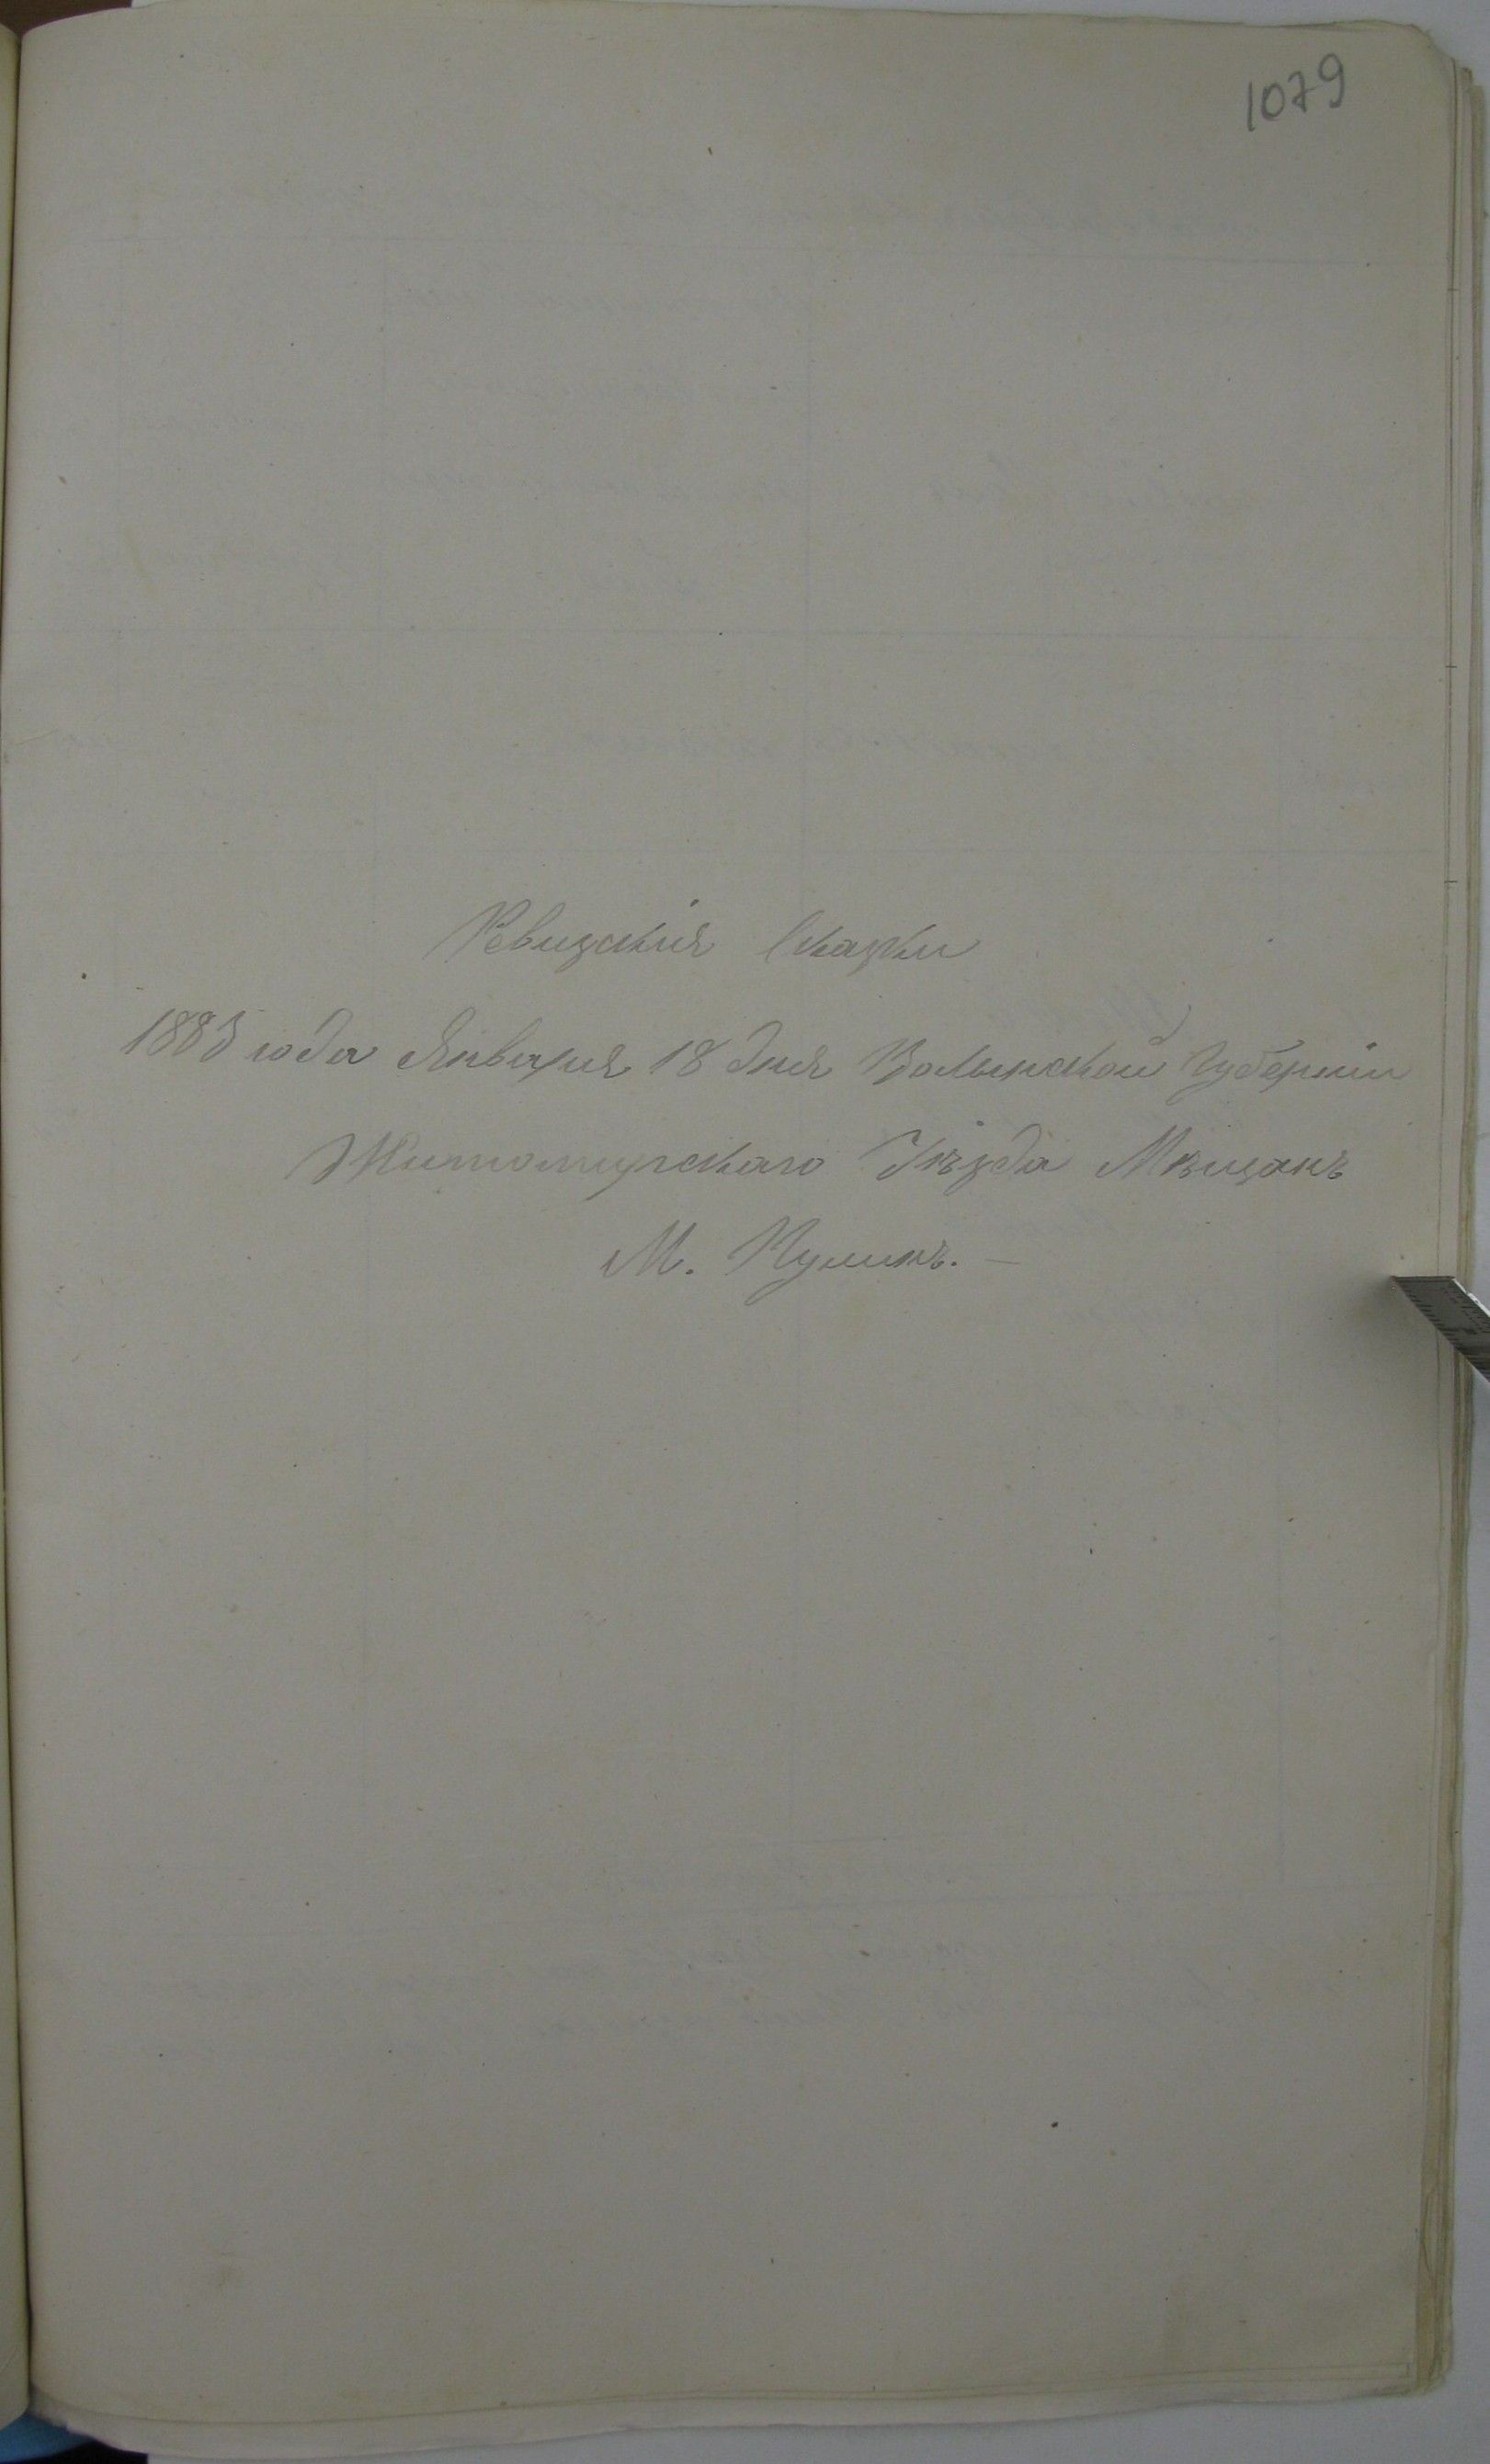 1079
Ревизскія Сказки
года Января 18 дня Волынской Губерніи
Житомирскаго Уѣзда Мѣщанъ
М. Кулинъ. —